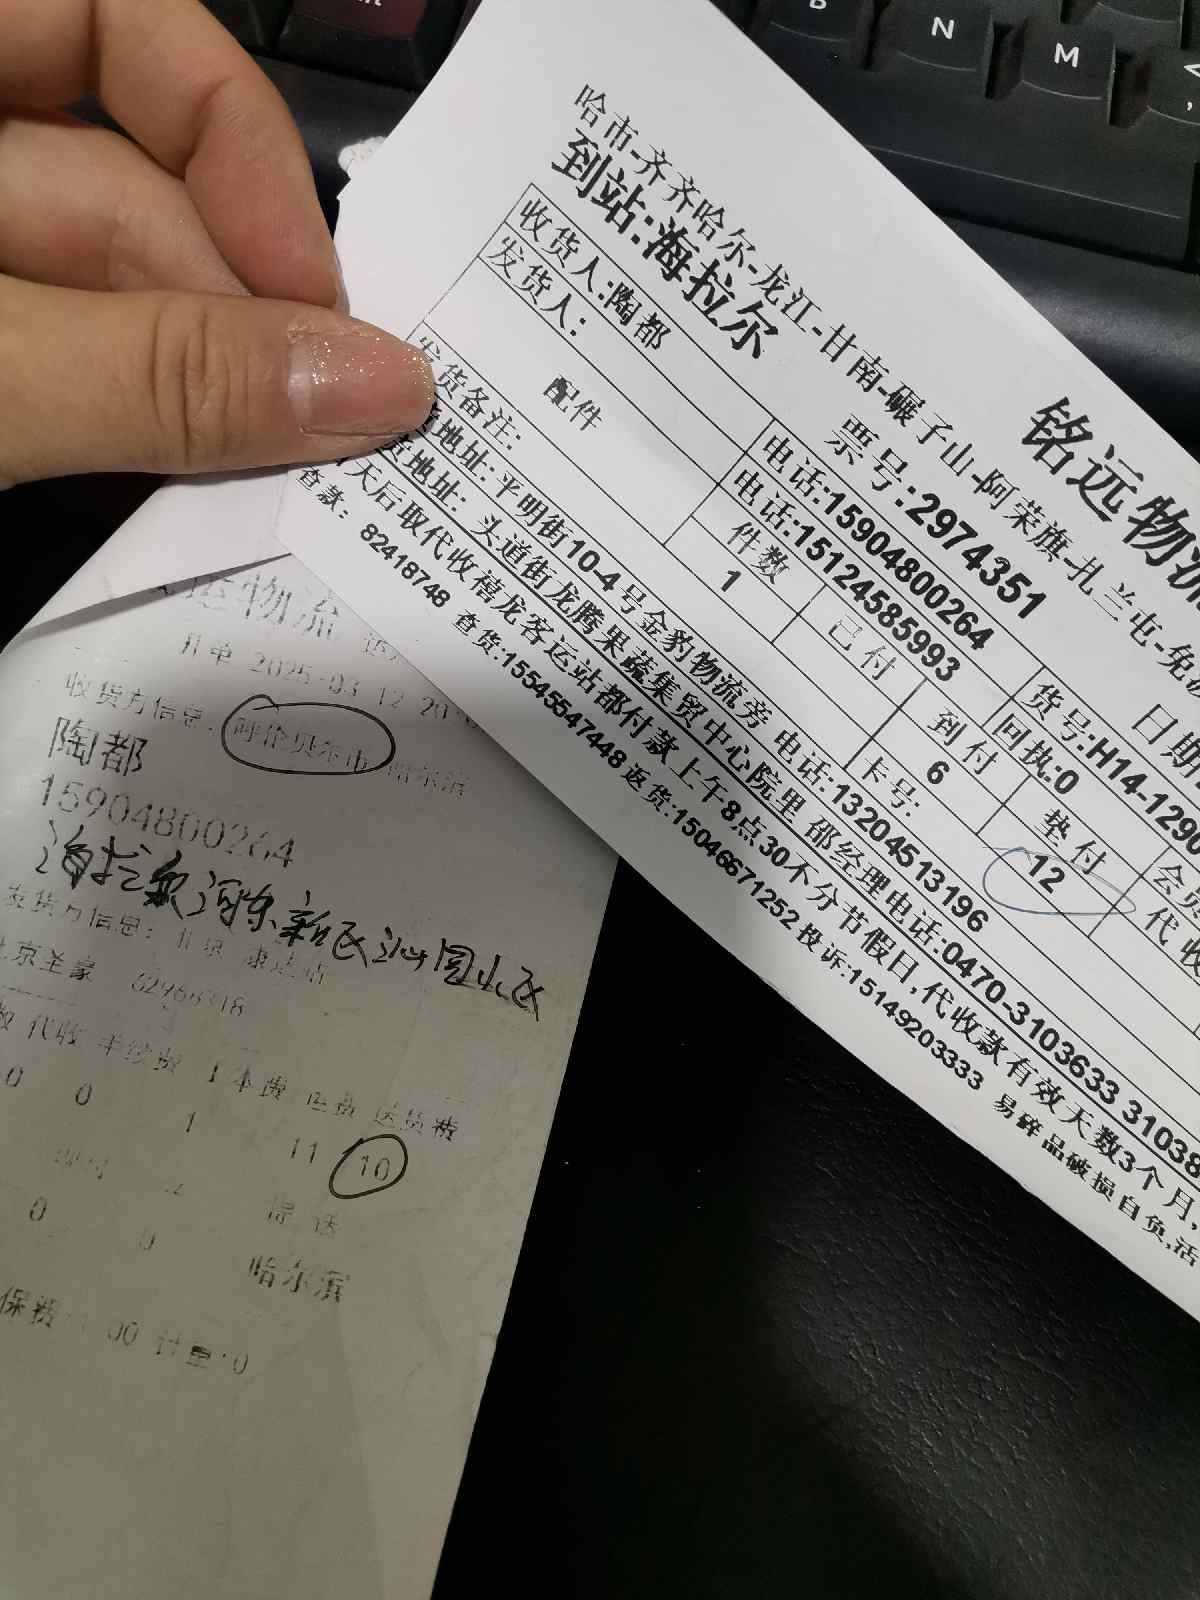 B
N
M
铭远物流
哈市-齐齐哈尔-龙江-甘南-碾子山-阿荣旗-扎兰屯-免
到站:海拉尔
票号:2974351
日期
收货人:陶都
电话:15904800264
货号:H14-1290
发货人:
电话:15124585993
回执:0
会员
配件
件数
已付
到付
垫付
代收
1
6
12
发货备注:
卡号:
地址:平明街10-4号金豹物流旁 电话:13204513196
货地址: 头道街龙腾果蔬集贸中心院里 邵经理电话:0470-3103633 31038
天后取代收禧龙客运站都付款上午8点30不分节假日,代收款有效天数3个月,
查款: 82418748 查货:15545547448 返货:15046671252 投诉:15149203333 易碎品破损自负,活
物流
开单 2025-03-12
收货方信息: 呼伦贝尔市 哈尔滨
陶都
15904800264
海拉尔河东新区沁园小区
发货方信息: 北京 康达站
北京圣豪 62968318
代收 手续费 工本费 运费 送货费
0 0 1 11 10
0 0
哈尔滨
保费: 00 计量:0